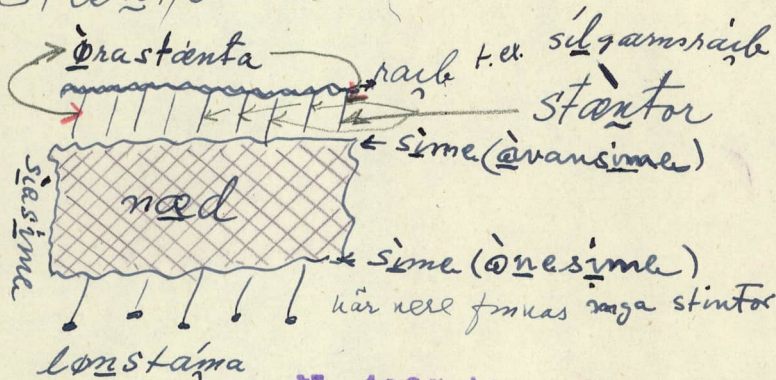 ørastænta
raib t.ex. silgarnsraib
stæntor
sìme (àvansime)
siasime
næd
sìme (ònesime)
här nere finnas inga stintor
lønstáma